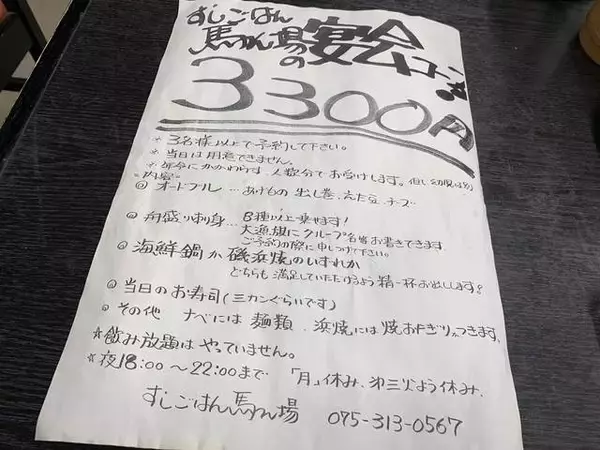 すしごはん
馬かん場の宴会コース
3300円
＊3名様以上で予約して下さい。
＊当日は用意できません。
＊年令にかかわらず、人数分でお受けします。但し幼児は別
○内容○
◎オードブル…あげもの 出し巻、えだ豆、チーズ
◎舟盛り刺身…8種以上乗せます!
大漁旗にグループ名等お書きできます
ご予約の際に申しつけ下さい。
◎海鮮鍋か磯浜焼のいずれか
どちらも満足していただけるよう精一杯お出しします!
◎当日のお寿司(三カンぐらいです)
◎その他 ナベには麺類、浜焼には焼おにぎりがつきます、
☆飲み放題はやっていません。
☆夜18:00～22:00まで 「月」休み、第三
すしごはん馬かん場 075-313-0567